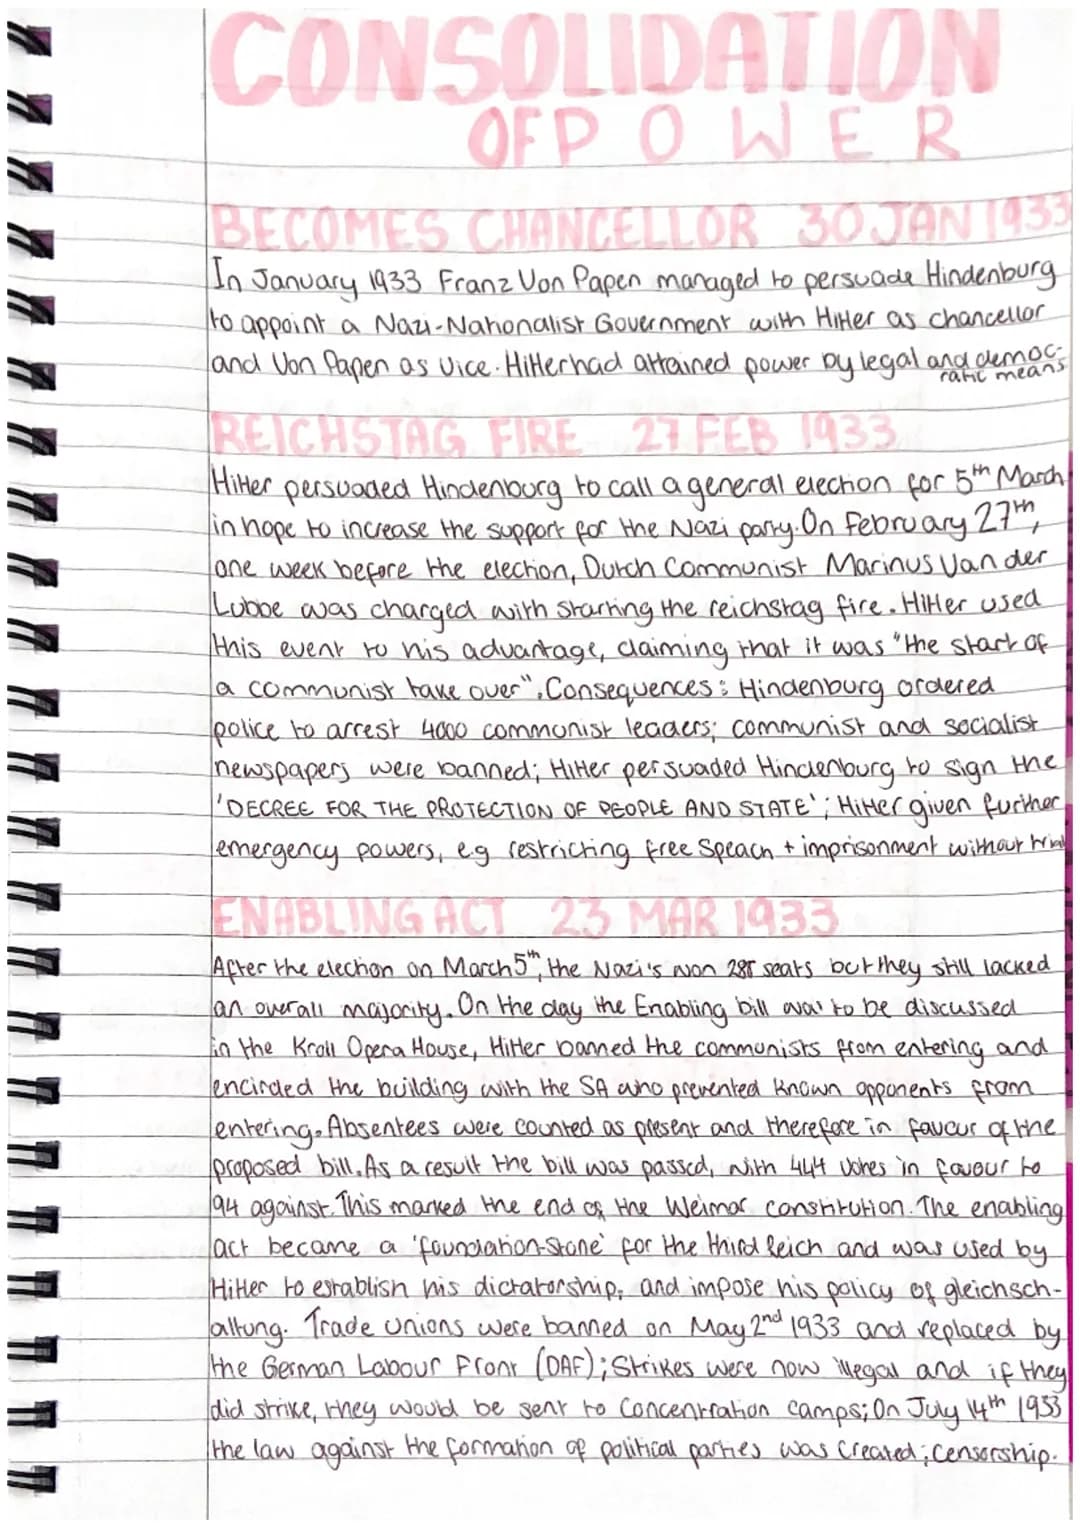 CONSOLIDATION
OF POWER
BECOMES CHANCELLOR 30 JAN 1933
In January 1933 Franz Von Papen managed to persuade Hindenburg
to appoint a Nazi-Nationalist Government with Hitler as chancellor
and Von Papen as vice. Hitler had attained power by legal and democ-
ratic means
REICHSTAG FIRE 27 FEB 1933
Hitler persuaded Hindenburg to call a general election for 5th March
in hope to increase the support for the Nazi party. On February 27th,
one week before the election, Dutch Communist Marinus Van der
Lubbe was charged with starting the reichstag fire. Hitler used
this event to his advantage, claiming that it was "the start of
a communist take over". Consequences: Hindenburg ordered
police to arrest 4000 communist leaders; communist and socialist
newspapers were banned; Hitler persuaded Hindenburg to sign the
'DECREE FOR THE PROTECTION OF PEOPLE AND STATE'; Hitler given further
emergency powers, e.g restricting free speach + imprisonment without trial
ENABLING ACT 23 MAR 1933
After the election on March 5th, the Nazi's won 288 seats but they still lacked
an overall majority. On the day the Enabling bill was to be discussed
in the Kroll Opera House, Hitler banned the communists from entering and
encircled the building with the SA who prevented known opponents from
entering. Absentees were counted as present and therefore in favour of the
proposed bill. As a result the bill was passed, with 444 votes in favour to
94 against. This marked the end of the Weimar constitution. The enabling
act became a 'foundation-stone' for the third Reich and was used by
Hitler to establish his dictatorship, and impose his policy of gleichsch-
altung. Trade unions were banned on May 2nd 1933 and replaced by
the German Labour Front (DAF); Strikes were now illegal and if they
did strike, they would be sent to concentration camps; On July 14th 1933
the law against the formation of political parties was created; censorship.